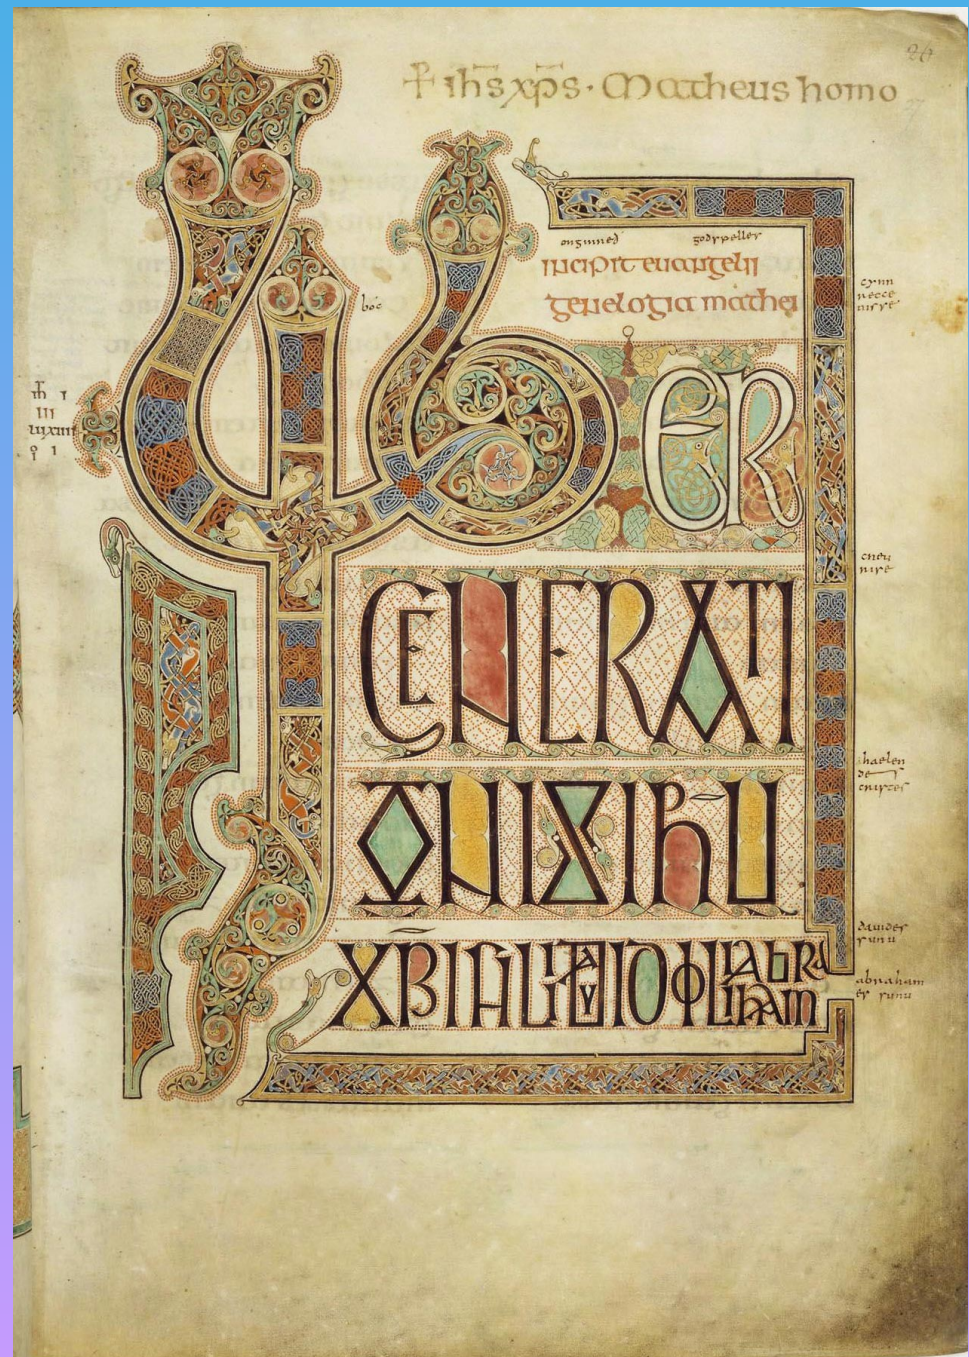 26
27
✝ ihs xps · Matheus homo
onginneð godspelles
incipit euangelii
genelogia mathei
cynn
recce
nisse
bóc
LIBER
cneu
nise
GENERATI
haelen
des
cristes
ONIS IHU
dauides
sunu
XRI FILII DAUID FILII ABRAHAM
abraham
es sunu